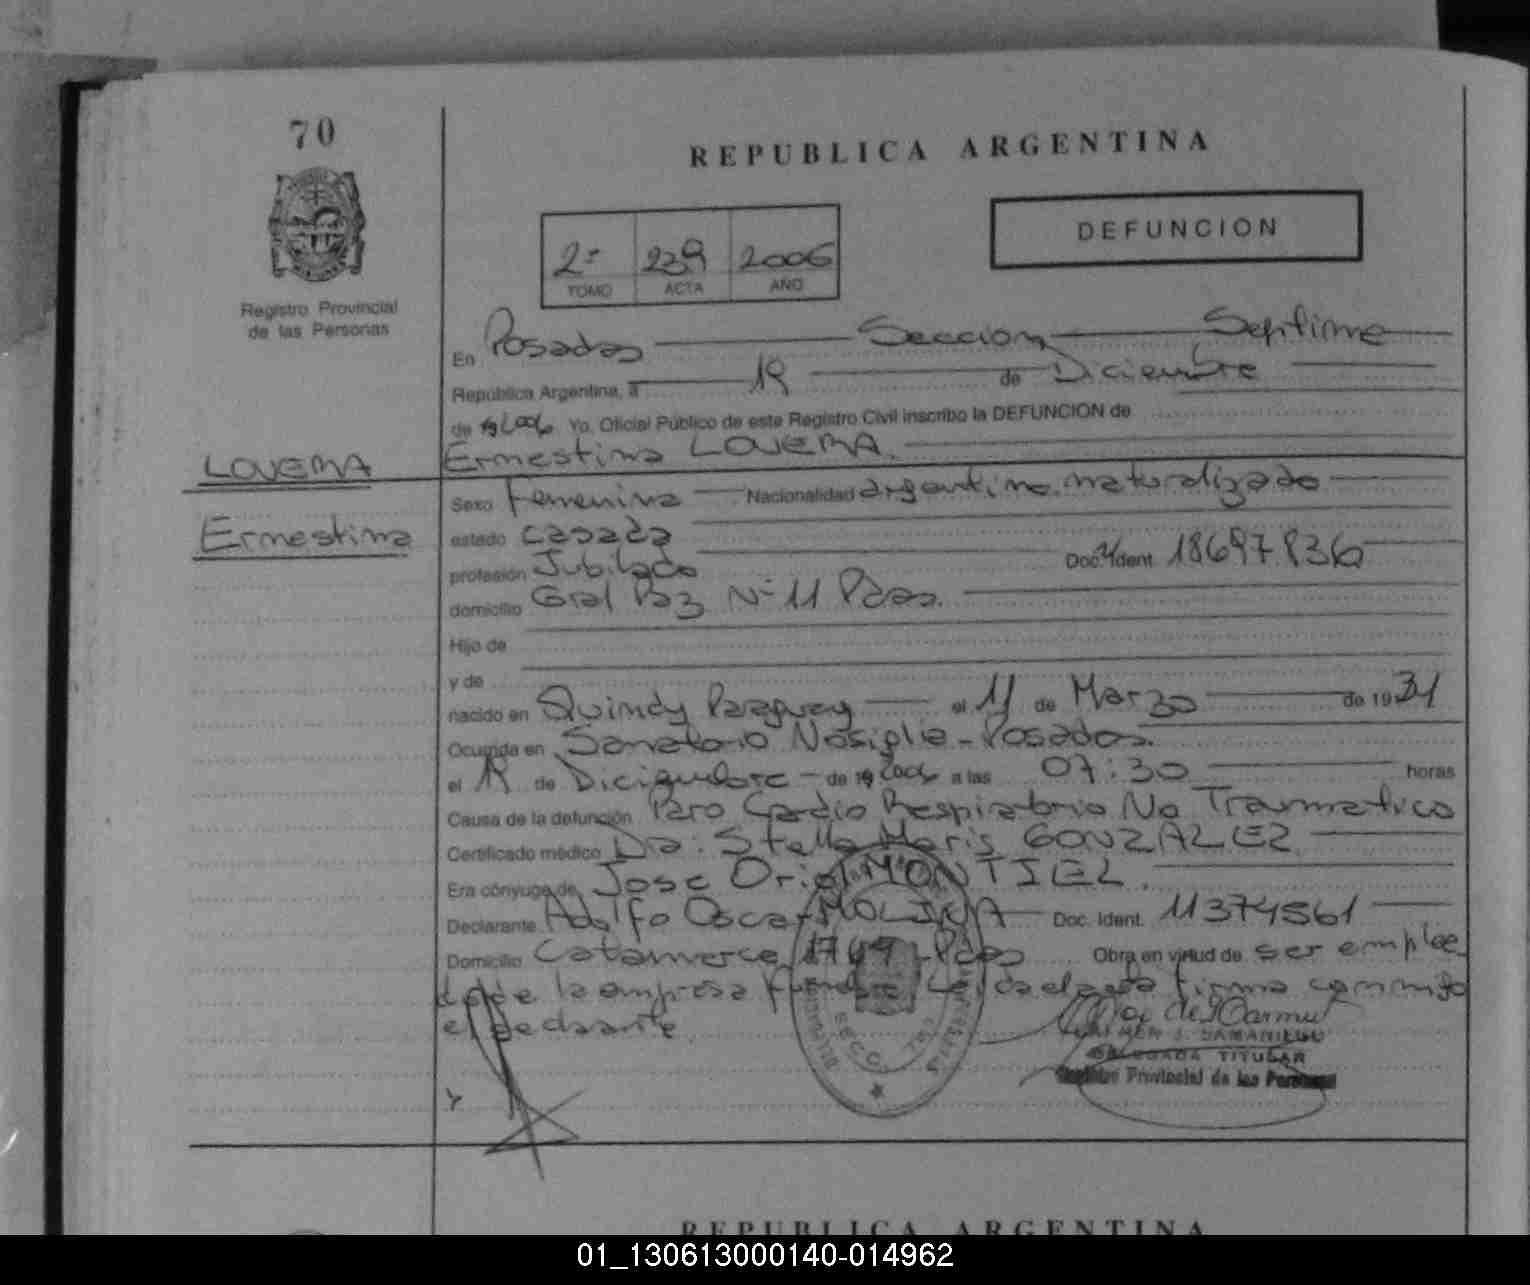 70
REPUBLICA ARGENTINA
DEFUNCION
2º 239 2006
TOMO ACTA AÑO
Registro Provincial
de las Personas
En Posadas Seccion Septima
República Argentina, a 19 de Diciembre
de 2006 Yo, Oficial Público de este Registro Civil inscribo la DEFUNCION de
LOVERA Ernestina LOVERA.
Ernestina
Sexo Femenina Nacionalidad argentina naturalizado
estado casada
profesión Jubilada Doc. Ident. 18697836
domicilio Gral Paz Nº 11 Pdas.
Hijo de
y de
nacido en Quindy Paraguay el 11 de Marzo de 1931
Ocurrida en Sanatorio Nosiglia - Posadas.
el 19 de Diciembre de 2006 a las 07:30 horas
Causa de la defunción Paro Cardio Respiratorio No Traumatico
Certificado médico Dra: Stella Maris GONZALEZ
Era cónyuge de Jose Oriol MONTIEL.
Declarante Adolfo Oscar MOLINA Doc. Ident. 11374561
Domicilio Catamarca 1749 - Pdas Obra en virtud de ser emplea
do de la empresa Leida el acta firma conmigo
el declarante
DELEGADA TITULAR
Registro Provincial de las Personas
REPUBLICA ARGENTINA
01_130613000140-014962